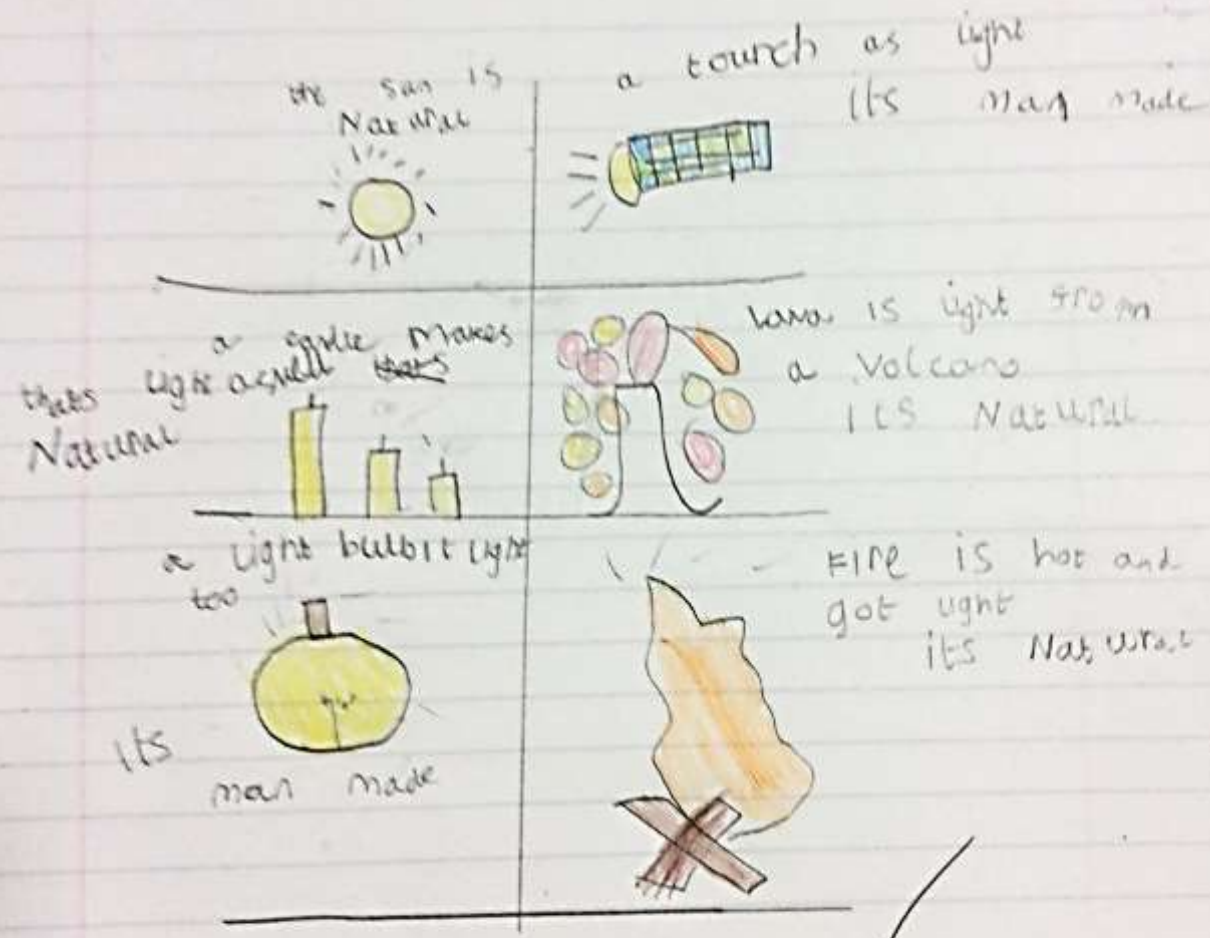 the sun is
Natural
a tourch as light
its man made
a candle makes
thats light aswell
Natural
lava is light from
a volcano
its Natural
a light bulb it light
too
its
man made
Fire is hot and
got light
its Natural